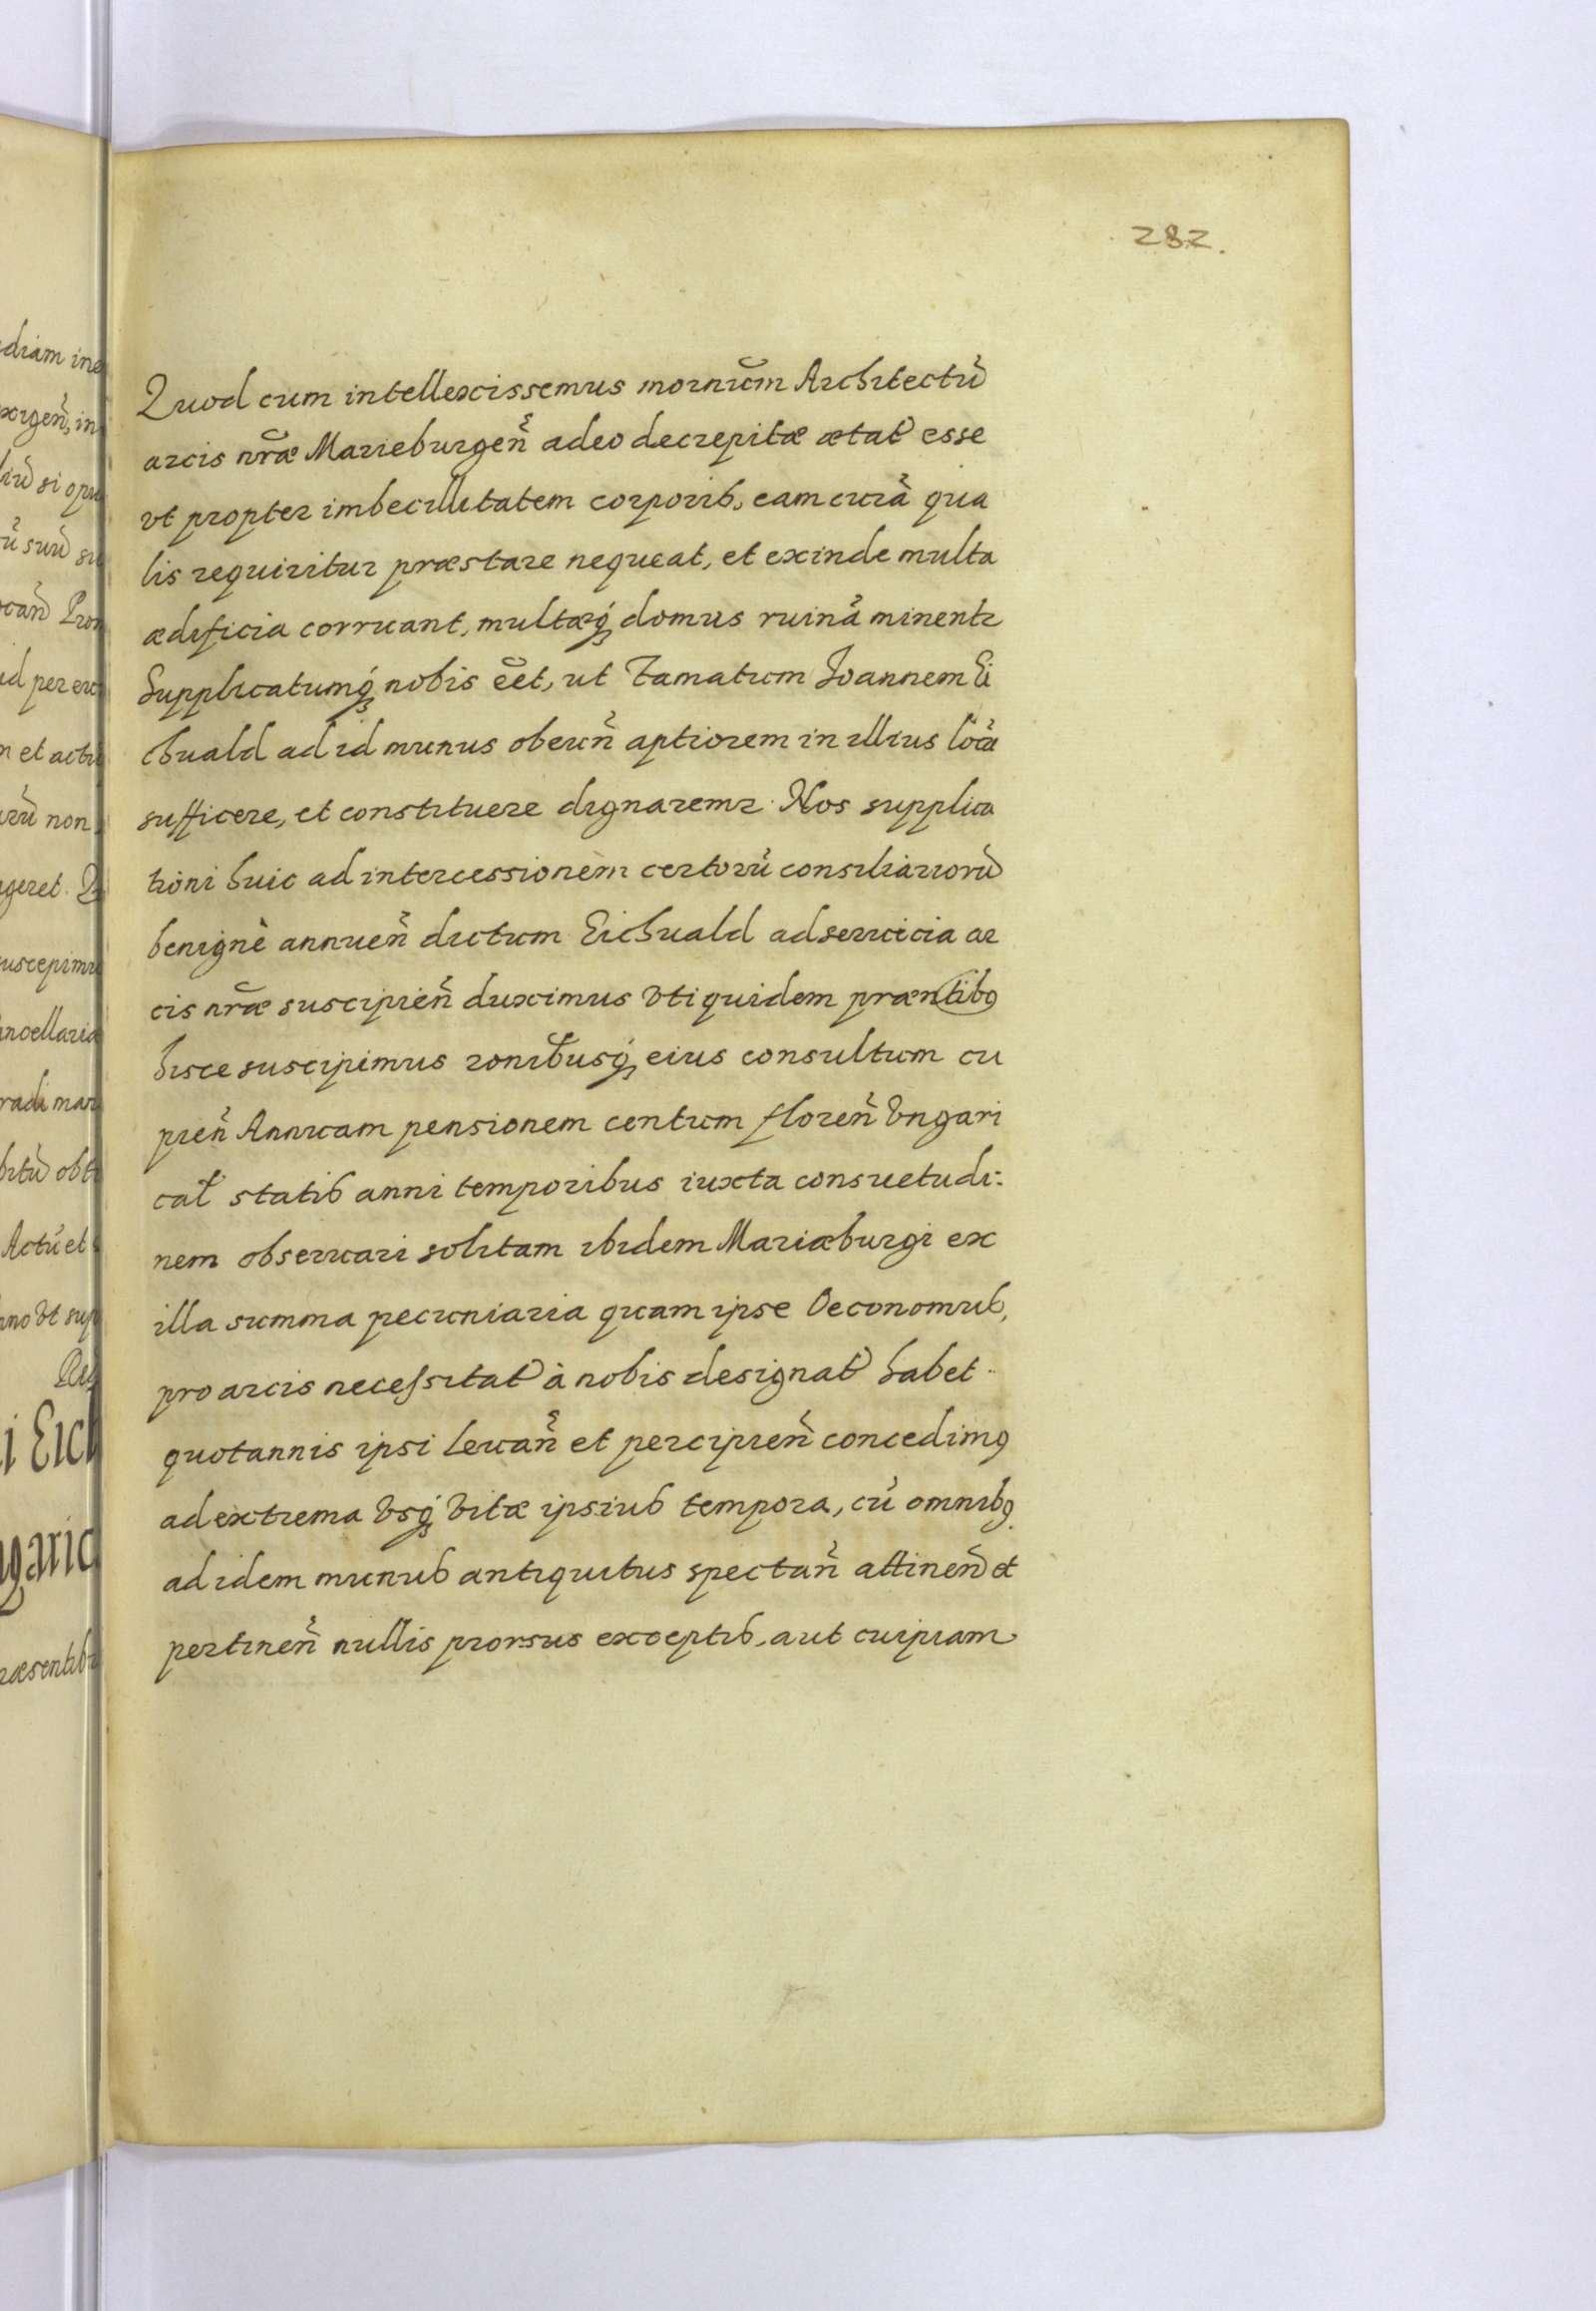 282.
Quod cum intellexissemus Architectũ
arcis nr̃æ Marieburgeñ adeo decrepitæ ætat esse
vt propter imbecillitatem corporis, eam curã qua
lis requiritur præstare nequeat, et exinde multa
ædificia corruant, multæq́ꝫ domus ruinã minentr
Supplicatumq́ꝫ nobis eẽt, ut famatum Ioannem Ei
chuald ad id munus obeuñ aptiorem in illius locũ
sufficere, et constituere dignaremr. Nos supplica
tioni huic ad intercessionem certorũ consiliariorũ
benignè annueñ dictum Eichuald ad seruicia ar
cis nr̃æ suscipieñ duximus Vti quidem præntibꝯ
hisce suscipimus ronibusq́ꝫ eius consultum cu
pieñ Annuam pensionem centum floreñ Vngari
cal statis anni temporibus iuxta consuetudi:
nem obseruari solitam ibidem Mariæburgi ex
illa summa pecuniaria quam ipse Oeconomus,
pro arcis necessitat à nobis designat habet.
quotannis ipsi leuañ et percipieñ concedimꝯ
ad extrema Vsq́ꝫ Vitæ ipsius tempora, cũ omnibꝯ
ad idem munus antiquitus spectañ attineñ et
pertineñ nullis prorsus exceptis, aut cuipiam